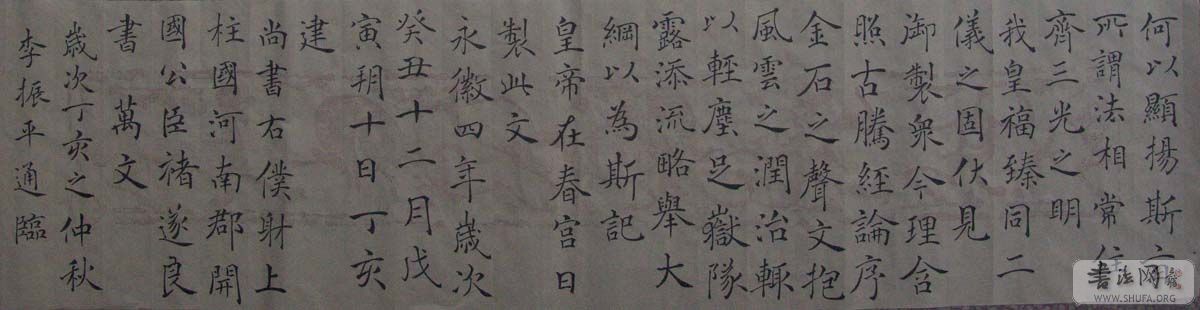 何以顯揚斯旨
所謂法相常住
齊三光之明
我皇福臻同二
儀之固伏見
御製衆今理含
照古騰經論序
金石之聲文抱
風雲之潤治輒
以輕塵足嶽隊
露添流略舉大
綱以為斯記
皇帝在春宮日
製此文
永徽四年歲次
癸丑十二月戊
寅朔十日丁亥
建
尚書右僕射上
柱國河南郡開
國公臣褚遂良
書 萬文
歲次丁亥之仲秋
李振平通臨
书法网
WWW.SHUFA.ORG